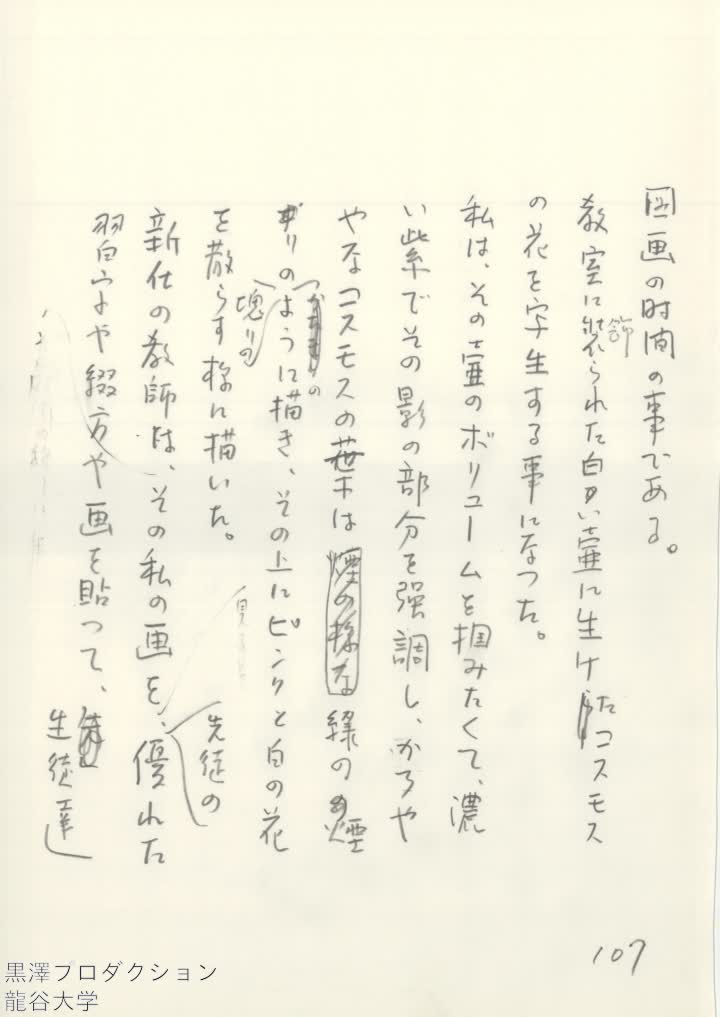 図画の時間の事である。
教室に飾られた白い壷に生けたコスモス
の花を写生する事になつた。
私は、その壷のボリュームを掴みたくて、濃
い紫でその影の部分を強調し、かろや
やなコスモスの葉は煙の様な緑の煙
のように描き、その上にピンクと白の花
塊りの
を散らす様に描いた。
新任の教師は、その私の画を、優れた
先徒の
習字や綴方や画を貼つて、
生徒達
107
黒澤プロダクション
龍谷大学